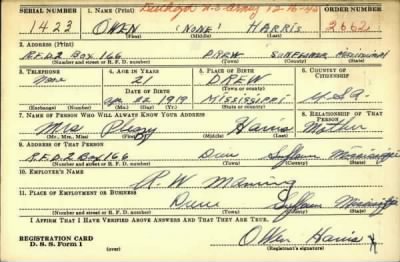 SERIAL NUMBER 1. NAME (Print) Discharged U.S. Army 12-16-45 ORDER NUMBER
1423 OWEN (NONE) HARRIS 2662
(First) (Middle) (Last)
2. ADDRESS (Print)
R.F.D.2 Box 166 DREW SUNFLOWER MISSISSIPPI
(Number and street or R. F. D. number) (Town) (County) (State)
3. TELEPHONE 4. AGE IN YEARS 5. PLACE OF BIRTH 6. COUNTRY OF CITIZENSHIP
None 21 DREW
DATE OF BIRTH (Town or county)
1919 MISSISSIPPI U.S.A.
(Exchange) (Number) (Mo.) (Day) (Yr.) (State or country)
7. NAME OF PERSON WHO WILL ALWAYS KNOW YOUR ADDRESS 8. RELATIONSHIP OF THAT PERSON
Mrs Harris Mother
(Mr., Mrs., Miss) (First) (Middle) (Last)
9. ADDRESS OF THAT PERSON
R.F.D.2 Box 166 Drew Mississippi
(Number and street or R. F. D. number) (Town) (County) (State)
10. EMPLOYER'S NAME
R. W. Manning
11. PLACE OF EMPLOYMENT OR BUSINESS
Drew
(Number and street or R. F. D. number) (Town) (County) (State)
I AFFIRM THAT I HAVE VERIFIED ABOVE ANSWERS AND THAT THEY ARE TRUE.
REGISTRATION CARD
D. S. S. Form 1 Owen Harris x
(over) (Registrant's signature)